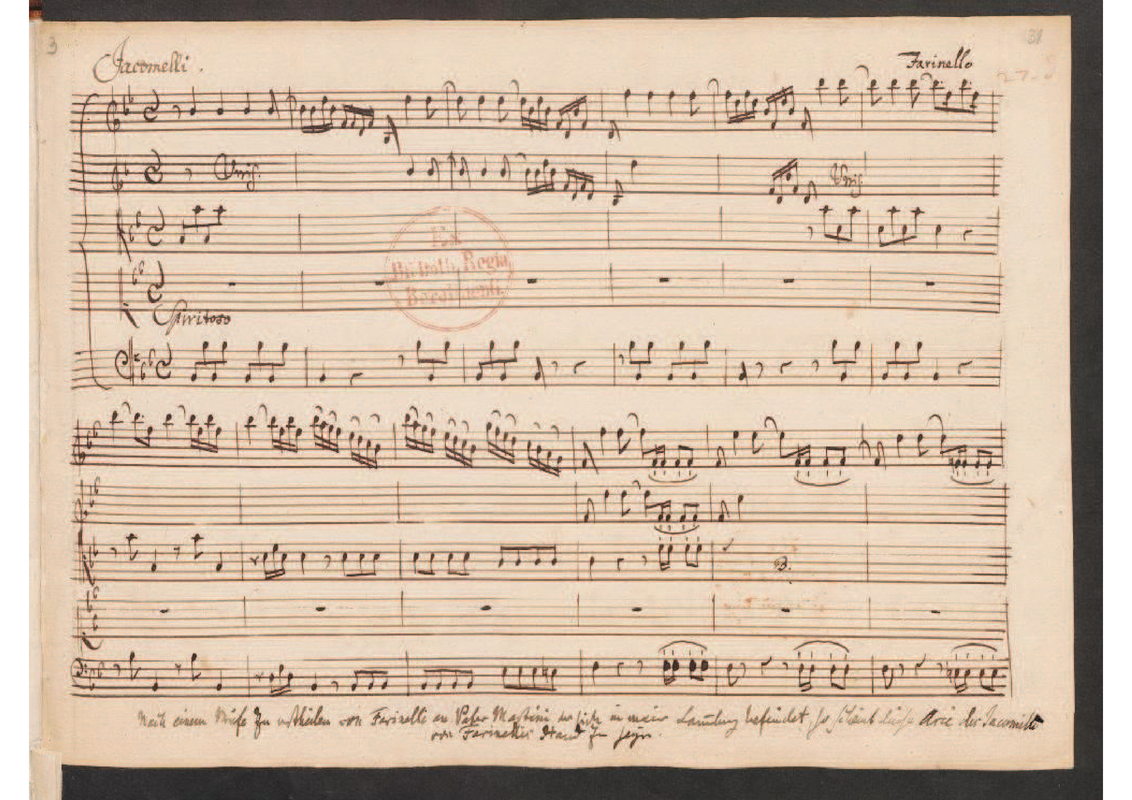 3
Jacomelli.
Farinello
31
27-
Unis.
Unis.
Ex
Biblioth. Regia
Berolinensi.
Spiritoso
B.
Nach einem Briefe zu urtheilen von Farinelli an Pater Martini der sich in meiner Samlung befindet, so scheint diese Arie des Jacomelli
von Farinellis Hand zu seyn.